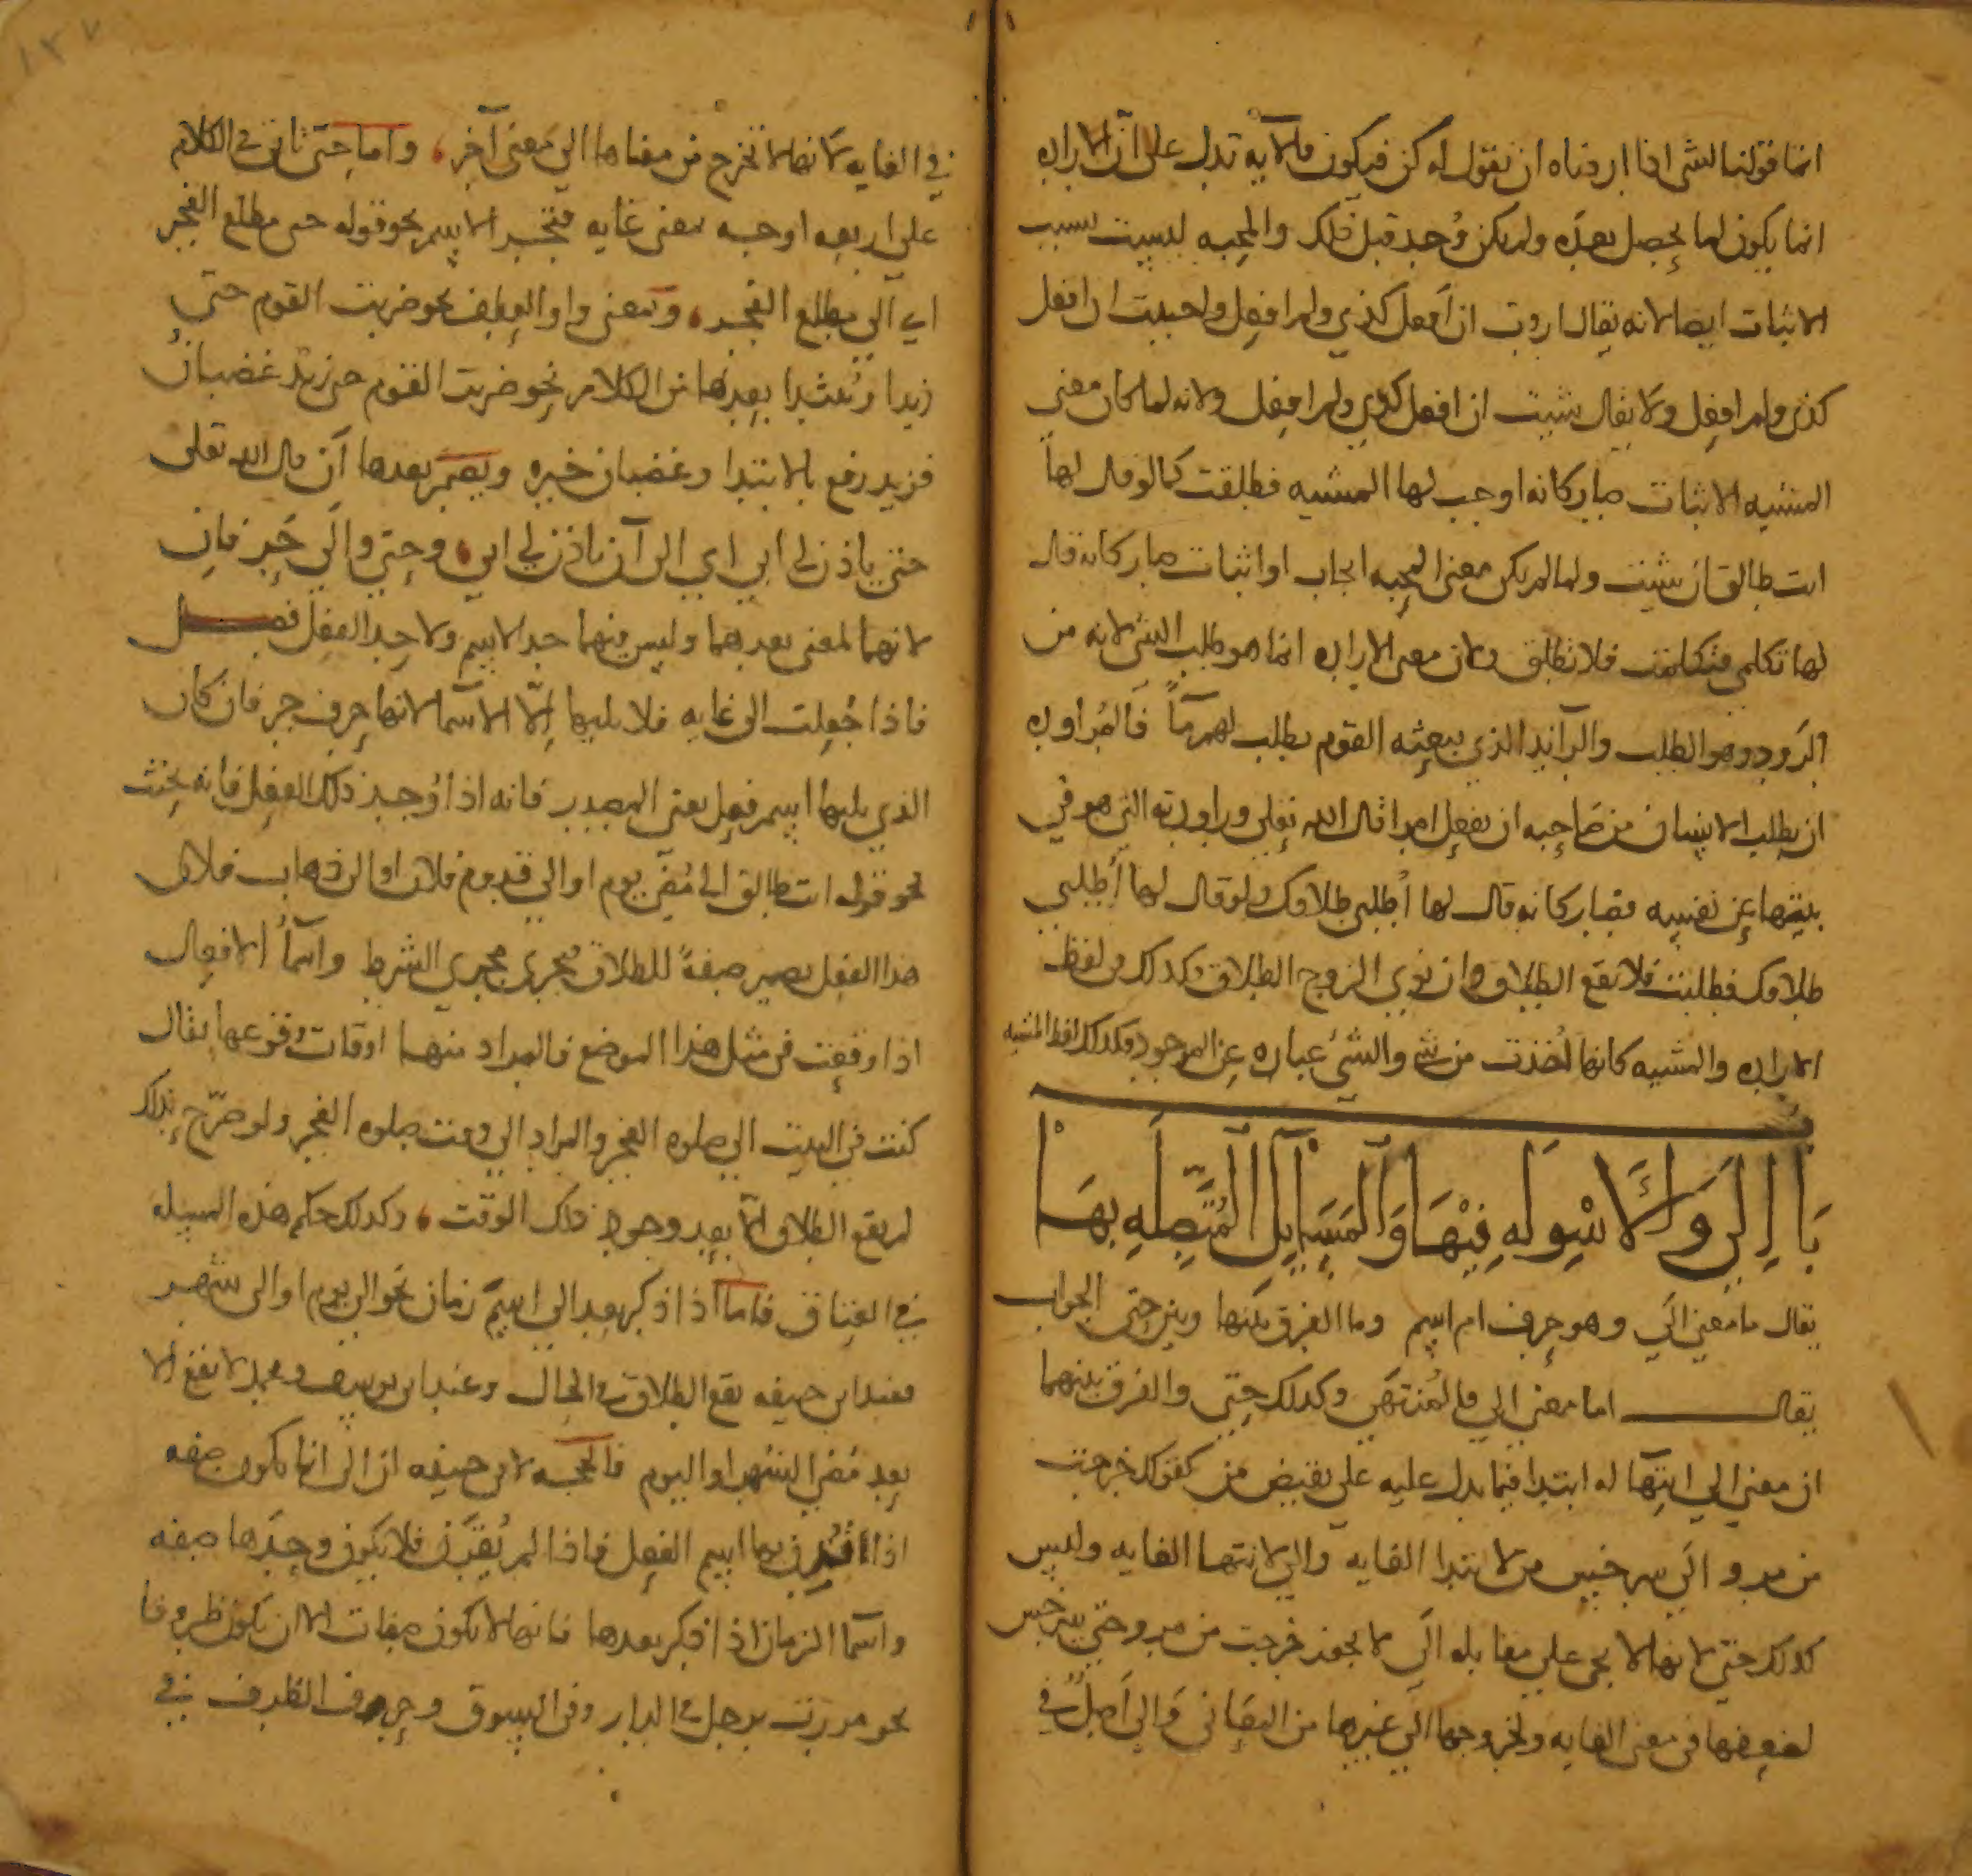 انما قولنا لشي اذا اردناه ان نقول له كن فيكون فالآيه تدل على انّ الاراده
انما يكون لما يحصل بعده ولم يكن وُجد قبل ذلك والمحبه ليست بسبب
الاثبات ايضا لانه يقال اردت ان افعل كذي ولم افعل واحببت ان افعل
كذى ولم افعل ولا يقال شيت ان افعل كذي ولم افعل ولانه لما كان معنى
المشيه الاثبات صار كانه اوجب لها المشيه فطلقت كما لو قال لها
انت طالق ان شيت ولما لم يكن معنى المحبه ايجاب او اثبات صار كانه قال
لها تكلمي فتكلمت فلا تطلق ولان معنى الاراده انما هو طلب الشي لانه من
الرَود وهو الطلب والرآئد الذي يبعثه القوم يطلب لهم مآً فالمُراوده
ان يطلب الانسان من صَاحِبه ان يفعل امرا قال الله تعلى وراودته التي هو في
بيتها عن نفسه فصار كانه قال لها اُطلبي طلاقك ولو قال لها اُطلبي
طلاقك فطلبت فلا يقع الطلاق وان نوى الزوج الطلاق وكذلك من لفظ
الاراده والمشيه كانها اُخذت من شي والشئ عباره عن الموجود وكذلك لفظ المشيه
بَاب اِلَى وَالاَسْوِلَهِ فِيْهَا وَالمَسَايِلِ المُتَّصِلَهِ بِهَا
يقال ما معنى الَي وهو حرف ام اسم وما الفرق بينها وبين حتى الجواب
يقال اما معنى الي فالمُنتهَي وكذلك حتي والفرق بينهما
ان معنى الي انتهَا له ابتدا فيما يدل عليه علي نقيض من كقولك خرجت
من مرو الَي سرخس من لابتدا الغايه والي لانتها الغايه وليس
كذلك حتي لانها لا تجي علي مقابله الَي لا يجوز خرجت من مرو حتي سرخس
لضعفها في معنى الغايه ولخروجها الي غيرها من المعَاني وَالي اَصلٌ في
في الغايه لانها لا تخرج من معناها الي معنى آخر، واما حتى تاتي في الكلام
علي اربعه اوجه بمعنى غايه فتجر الاسم نحو قوله حتى مطلع الفجر
اي الي مطلع الفجر، وبمعنى واو العطف نحو ضربت القوم حتي
زيدا ويُبتدا بعدها من الكلام نحو ضربت القوم حتى زيد غضبان
فزيد رفع بالابتدا وغضبان خبره ويُضمر بعدها اَن قال الله تعلى
حتي ياذن لي ابي اي الي اَن ياذن لي ابي، وحتي والَي حرفان
لانهما لمعنى بعدهما وليس فيهما حد الاسم ولا حد الفعل فصل
فاذا جُعلت الى غايه فلا يليها اِلّا الاسمآ لانها حرف جر فان كان
الذي يليها اسم فعل يعني المصدر فانه اذا وُجد ذلك الفعل فانه يحنث
نحو قوله انت طالق الي مُضي يوم او الي قدوم فلان او الي ذهاب فلان
هذا الفعل يصير صفةً للطلاق فيجري مجري الشرط واسمآُ الافعال
اذا وقعت في مثل هذا الموضع فالمراد منها اوقات وقوعها يقال
كنت في البيت الي صلوه الفجر والمراد الي وقت صلوه الفجر ولو صرّح بذلك
لم يقع الطلاق الّا بعد وجود ذلك الوقت، وكذلك حكم هذه المسيله
في العتاق فاما اذا ذكر بعد الي اسمَ زمان نحو الي يوم او الى شهر
فعند ابي حنيفه يقع الطلاق في الحال وعند ابي يوسف ومحمد لا يقع الا
بعد مُضي الشهر او اليوم فالحجه لابي حنيفه ان الى انما تكون صفه
اذا اقترن بها اسم الفعل فاذا لم يُقرَن فلا يكون وحدَها صفه
واسمآ الزمان اذا ذكر بعدها فانها لا تكون صفات الا ان تكون ظروفا
نحو مررت برجل في الدار وفي السوق وحروف الظرف في